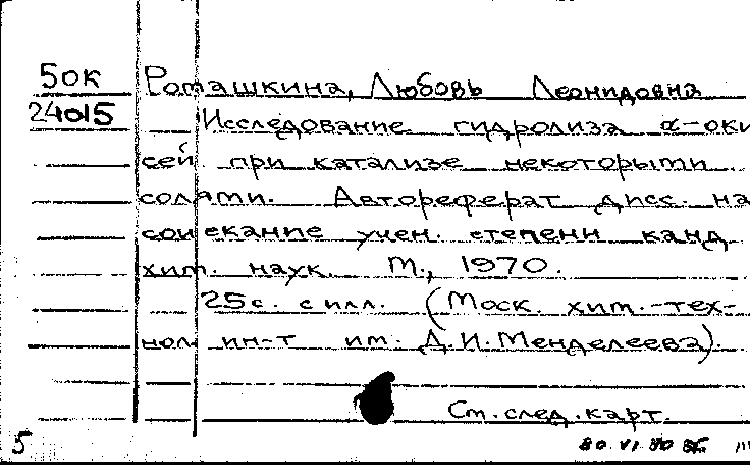 50к Роташкина, Любовь Леонидовна
24015 Исследование гидролиза α-оки
сей при катализе некоторыми
солями. Автореферат дисс. на
соискание учен. степени канд
хим. наук. М., 1970.
25 с. с илл. (Моск. хим.-тех-
нол ин-т им. Д.И. Менделеева).
См. след. карт.
5